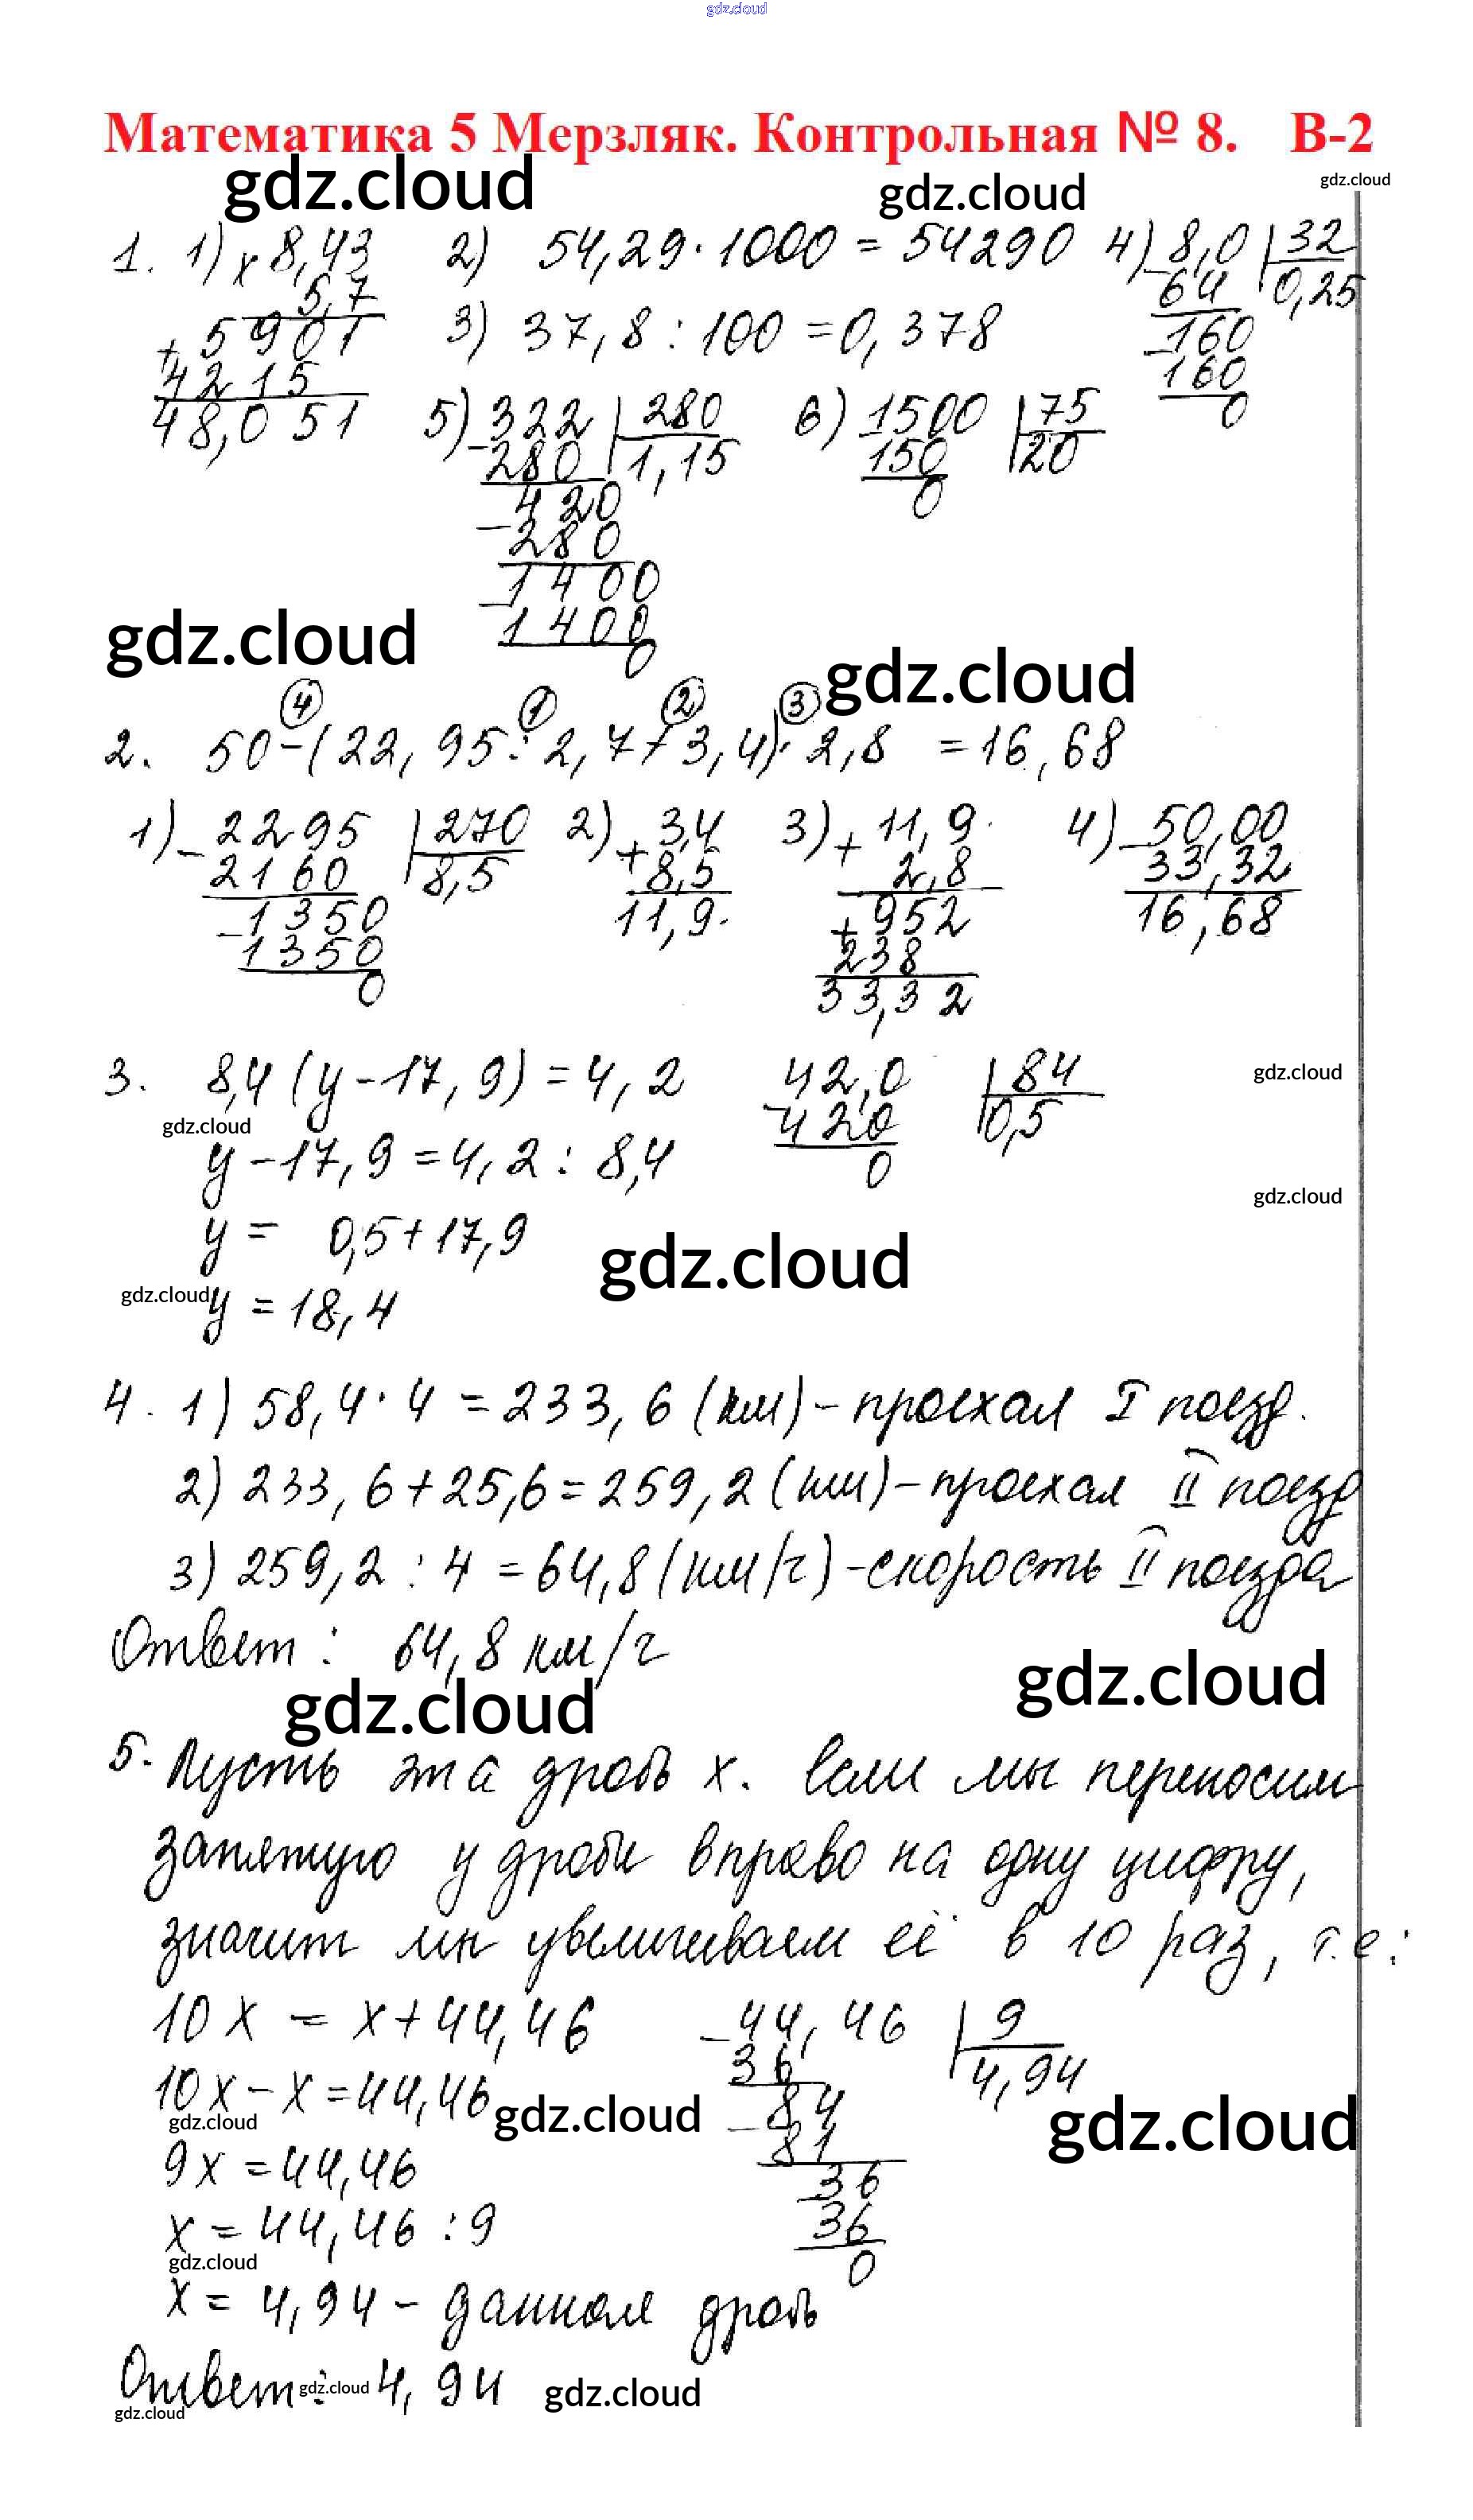 gdz.cloud
Математика 5 Мерзляк. Контрольная № 8. В-2
gdz.cloud gdz.cloud gdz.cloud
1. 1) × 8,43 2) 54,29 · 1000 = 54290 4) 8,0 | 32
5,7 − 64 0,25
+ 5901 3) 37,8 : 100 = 0,378 − 160
4215 160
48,051 5) − 322 | 280 6) 1500 | 75 0
280 1,15 150 20
420 0
− 280
− 1400
1400
0
gdz.cloud gdz.cloud
④ ① ② ③
2. 50 − (22,95 : 2,7 + 3,4) · 2,8 = 16,68
1) − 2295 | 270 2) + 3,4 3) + 11,9 4) − 50,00
2160 8,5 8,5 2,8 33,32
− 1350 11,9 + 952 16,68
1350 238
0 33,32
3. 8,4 (y − 17,9) = 4,2 − 42,0 | 84 gdz.cloud
gdz.cloud 420 0,5
y − 17,9 = 4,2 : 8,4 0
gdz.cloud
y = 0,5 + 17,9
gdz.cloud
gdz.cloud y = 18,4
4. 1) 58,4 · 4 = 233,6 (км) − проехал I поезд.
2) 233,6 + 25,6 = 259,2 (км) − проехал II поезд
3) 259,2 : 4 = 64,8 (км/ч) − скорость II поезда
Ответ : 64,8 км/ч
gdz.cloud gdz.cloud
5. Пусть эта дробь x. Если мы переносим
запятую у дроби вправо на одну цифру,
значит мы увеличиваем её в 10 раз, т.е:
10x = x + 44,46 − 44,46 | 9
36 4,94
10x − x = 44,46 84
gdz.cloud gdz.cloud − 81 gdz.cloud
9x = 44,46 − 36
x = 44,46 : 9 36
gdz.cloud 0
x = 4,94 − данная дробь
Ответ: gdz.cloud 4,94 gdz.cloud
gdz.cloud